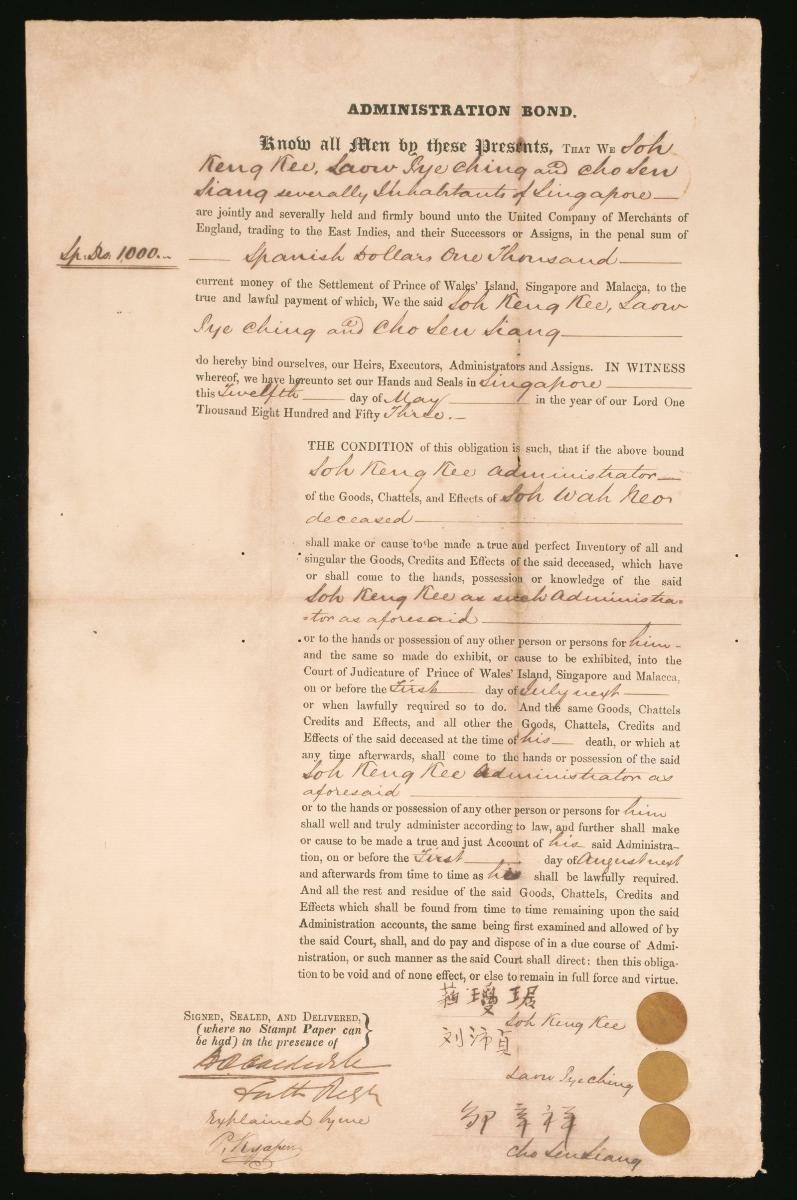 ADMINISTRATION BOND.
Know all Men by these Presents, THAT WE Soh
Keng Kee, Laow Pye Ching and Cho Sen
Siang severally Inhabitants of Singapore
are jointly and severally held and firmly bound unto the United Company of Merchants of
England, trading to the East Indies, and their Successors or Assigns, in the penal sum of
Sp. Drs. 1,000.. Spanish Dollars One Thousand
current money of the Settlement of Prince of Wales' Island, Singapore and Malacca, to the
true and lawful payment of which, We the said Soh Keng Kee, Laow
Pye Ching and Cho Sen Siang
do hereby bind ourselves, our Heirs, Executors, Administrators and Assigns. IN WITNESS
whereof, we have hereunto set our Hands and Seals in Singapore
this Twelfth day of May in the year of our Lord One
Thousand Eight Hundred and Fifty Three.
THE CONDITION of this obligation is such, that if the above bound
Soh Keng Kee Administrator
of the Goods, Chattels, and Effects of Soh Wah Neo
deceased
shall make or cause to be made a true and perfect Inventory of all and
singular the Goods, Credits and Effects of the said deceased, which have
or shall come to the hands, possession or knowledge of the said
Soh Keng Kee as such Administra-
-tor as aforesaid
or to the hands or possession of any other person or persons for him
and the same so made do exhibit, or cause to be exhibited, into the
Court of Judicature of Prince of Wales' Island, Singapore and Malacca,
on or before the First day of July next
or when lawfully required so to do. And the same Goods, Chattels
Credits and Effects, and all other the Goods, Chattels, Credits and
Effects of the said deceased at the time of his death, or which at
any time afterwards, shall come to the hands or possession of the said
Soh Keng Kee Administrator as
aforesaid
or to the hands or possession of any other person or persons for him
shall well and truly administer according to law, and further shall make
or cause to be made a true and just Account of his said Administra-
tion, on or before the First day of August next
and afterwards from time to time as he shall be lawfully required.
And all the rest and residue of the said Goods, Chattels, Credits and
Effects which shall be found from time to time remaining upon the said
Administration accounts, the same being first examined and allowed of by
the said Court, shall, and do pay and dispose of in a due course of Admi-
nistration, or such manner as the said Court shall direct: then this obliga-
tion to be void and of none effect, or else to remain in full force and virtue.
SIGNED, SEALED, AND DELIVERED,
(where no Stampt Paper can
be had) in the presence of
Explained by me
瓊琚
Soh Keng Kee
刘沛貞
Laow Pye Ching
Cho Sen Siang